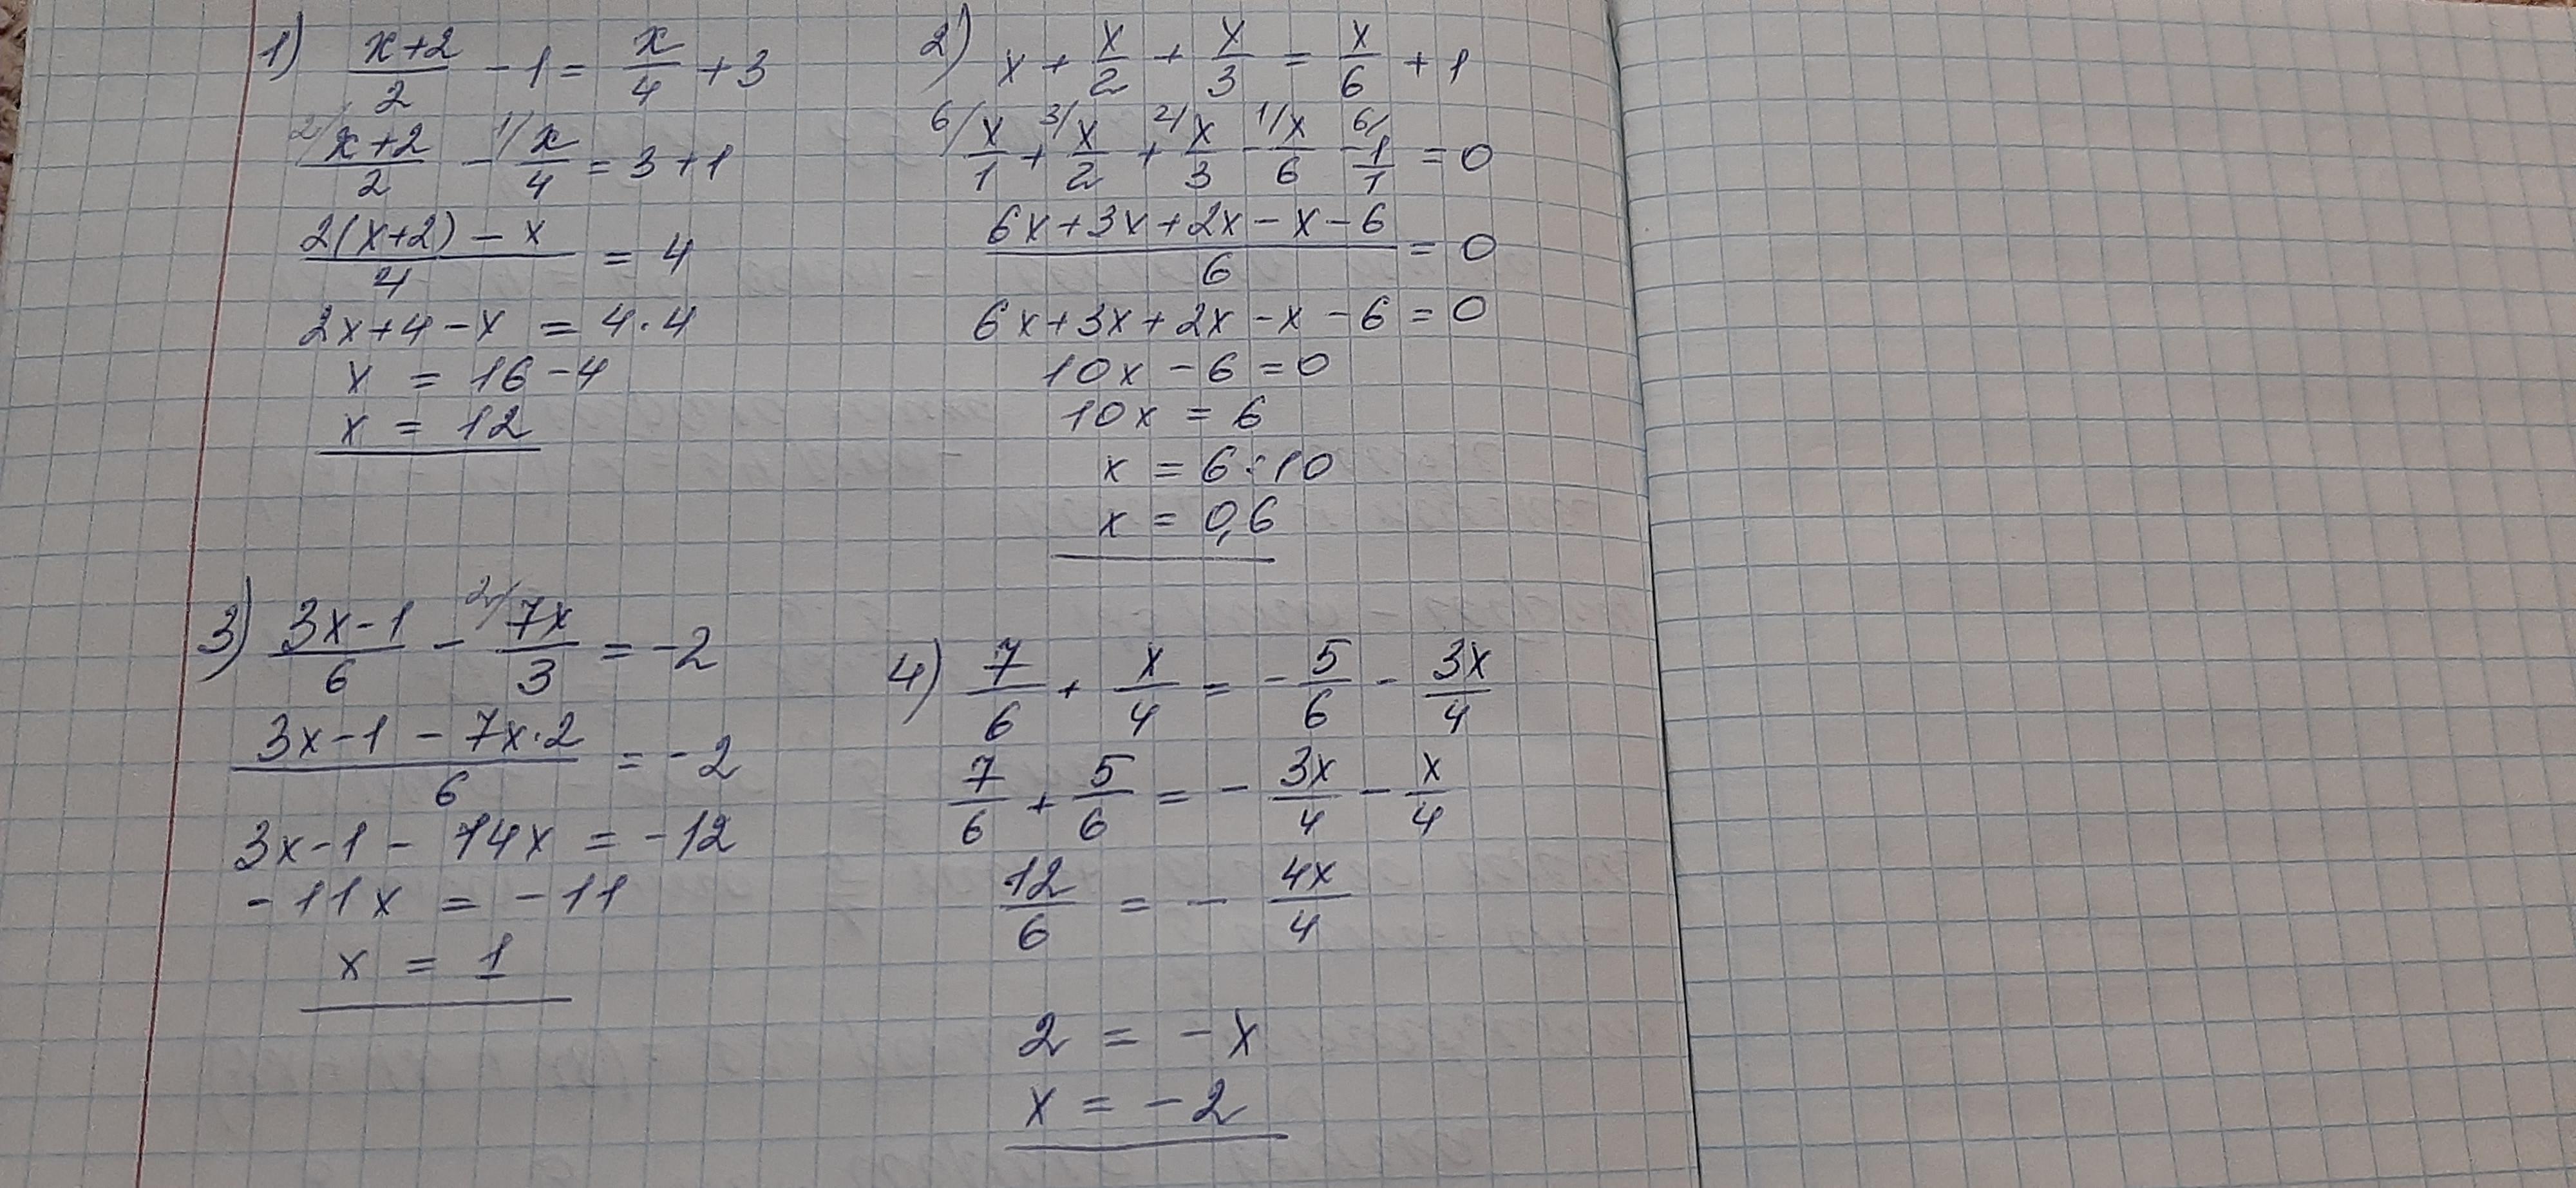 1) (x+2)/2 - 1 = x/4 + 3
2/ (x+2)/2 - 1/ x/4 = 3+1
(2(x+2) - x)/4 = 4
2x+4-x = 4·4
x = 16-4
x = 12
2) x + x/2 + x/3 = x/6 + 1
6/ x/1 + 3/ x/2 + 2/ x/3 - 1/ x/6 - 6/ 1/1 = 0
(6x+3x+2x-x-6)/6 = 0
6x+3x+2x-x-6=0
10x-6=0
10x = 6
x = 6:10
x = 0,6
3) (3x-1)/6 - 2/ 7x/3 = -2
(3x-1-7x·2)/6 = -2
3x-1-14x = -12
-11x = -11
x = 1
4) 7/6 + x/4 = - 5/6 - 3x/4
7/6 + 5/6 = - 3x/4 - x/4
12/6 = - 4x/4
2 = -x
x = -2